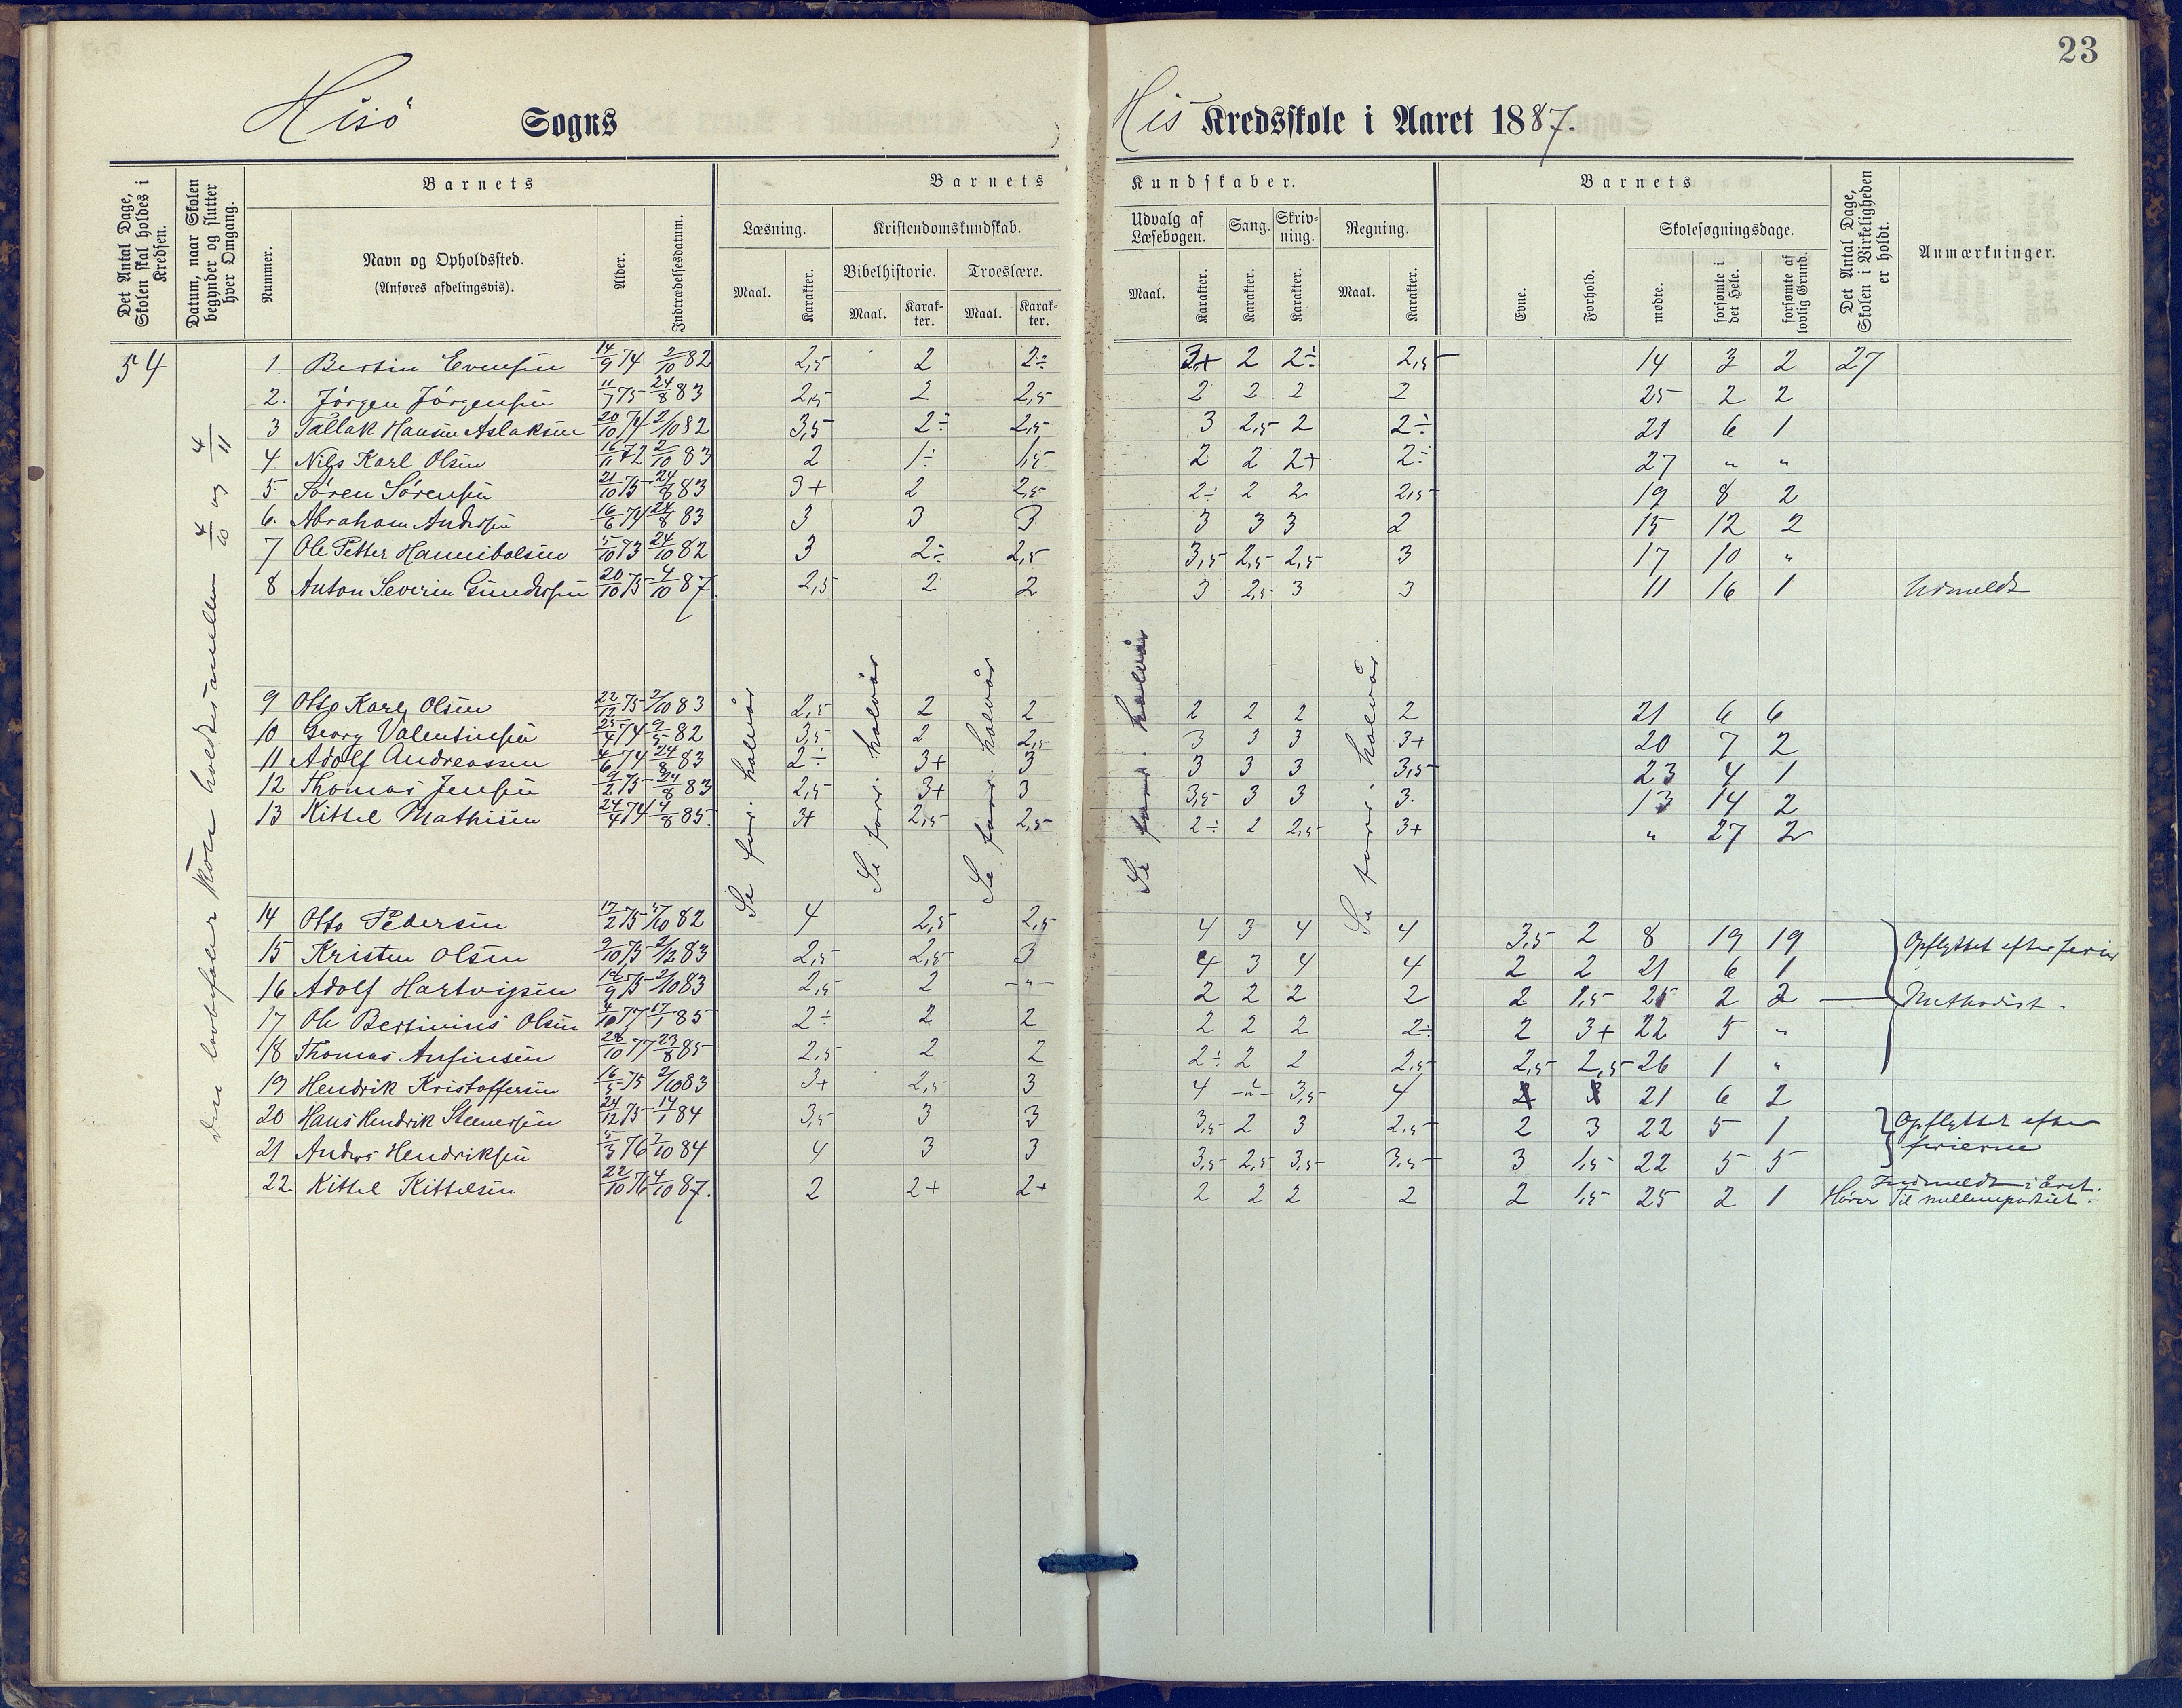 23
Hisö Sogns His Kredsskole i Aaret 1887.
Det Antal Dage, Skolen skal holdes i Kredsen.
Datum, naar Skolen begynder og slutter hver Omgang.
Barnets
Nummer.
Navn og Opholdssted.
(Anføres afdelingsvis).
Alder.
Indtrædelsesdatum.
Barnets Kundskaber.
Læsning.
Maal. Karakter.
Kristendomskundskab.
Bibelhistorie. Troeslære.
Maal. Karakter. Maal. Karakter.
Udvalg af Læsebogen.
Maal. Karakter.
Sang. Karakter.
Skrivning. Karakter.
Regning.
Maal. Karakter.
Barnets
Evne. Forhold.
Skolesøgningsdage.
mødte. forsømte i det Hele. forsømte af lovlig Grund.
Det Antal Dage, Skolen i Virkeligheden er holdt.
Anmærkninger.
54
Den lovbefalede skole holdtes imellem 4/10 og 4/11
Se forr. halvår
Se forr. halvår
Se forr. halvår
Se forr. halvår
Se forr. halvår
1. Bertin Evensen 14/9 74 2/10 82 2,5 2 2÷ 3+ 2 2÷ 2,5 14 3 2 27
2. Jörgen Jörgensen 11/7 75 24/8 83 2,5 2 2,5 2 2 2 2 25 2 2
3 Tallak Hansen Aslaksen 20/10 74 2/10 82 3,5 2÷ 2,5 3 2,5 2 2÷ 21 6 1
4. Nils Karl Olsen 16/11 72 2/10 83 2 1÷ 1,5 2 2 2+ 2÷ 27 " "
5. Sören Sörensen 21/10 75 24/8 83 3+ 2 2,5 2÷ 2 2 2,5 19 8 2
6. Abraham Andersen 16/6 74 24/8 83 3 3 3 3 3 3 2 15 12 2
7 Ole Petter Hannibalsen 5/10 73 24/10 82 3 2÷ 2,5 3,5 2,5 2,5 3 17 10 "
8 Anton Severin Gundersen 20/10 75 4/10 87 2,5 2 2 3 2,5 3 3 11 16 1 Udmeldt
9 Otto Karl Olsen 22/12 75 2/10 83 2,5 2 2 2 2 2 2 21 6 6
10 Georg Valentinsen 25/4 74 9/5 82 3,5 2 2,5 3 3 3 3+ 20 7 2
11 Adolf Andreassen 4/6 74 24/8 83 2÷ 3+ 3 3 3 3 3,5 23 4 1
12 Thomas Jensen 9/2 75 24/8 83 2,5 3+ 3 3,5 3 3 3. 13 14 2
13 Kittel Mathisen 24/4 74 4/8 85. 3+ 2,5 2,5 2÷ 2 2,5 3+ " 27 2
14 Otto Pedersen 17/2 75 5/10 82 4 2,5 2,5 4 3 4 4 3,5 2 8 19 19 Opflyttet efter ferien
15 Kristen Olsen 9/10 75 2/12 83 2,5 2,5 3 4 3 4 4 2 2 21 6 1
16 Adolf Hartvigsen 9 75 2/10 83 2,5 2 -"- 2 2 2 2 2 1,5 25 2 2 Methodist.
17 Ole Bertinius Olsen 4/10 77 17/1 85 2÷ 2 2 2 2 2 2÷ 2 3+ 22 5 "
18 Thomas Anfinsen 28/10 77 23/8 85 2,5 2 2 2÷ 2 2 2,5 2,5 2,5 26 1 "
19 Hendrik Kristoffersen 16/5 75 2/10 83 3+ 2,5 3 4 -"- 3,5 4 21 6 2
20 Hans Hendrik Steenersen 24/12 75 14/1 84 3,5 3 3 3,5 2 3 2,5 2 3 22 5 1 Opflyttet efter ferierne
21 Anders Hendriksen 5/3 76 2/10 84 4 3 3 3,5 2,5 3,5 3,5 3 1,5 22 5 5
22 Kittel Kittelsen 22/10 76 4/10 87. 2 2+ 2+ 2 2 2 2 2 1,5 25 2 1 Indmeldt i året. Hörer til mellempartiet.